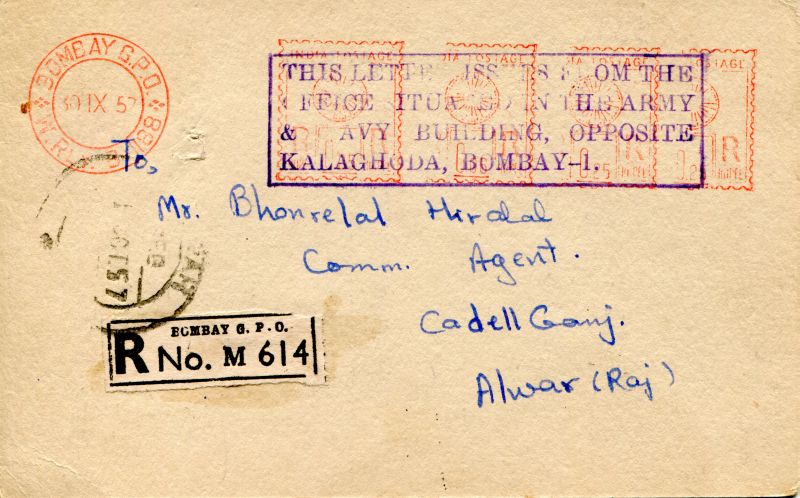 BOMBAY G.P.O.
30 IX 57
INDIA POSTAGE
POSTAGE
POSTAGE
POSTAGE
THIS LETTER ISSUES FROM THE
OFFICE SITUATED IN THE ARMY
& NAVY BUILDING, OPPOSITE
KALAGHODA, BOMBAY-1.
To,
Mr. Bhonrelal Hiralal
Comm. Agent.
Cadell Ganj.
Alwar (Raj)
BOMBAY G.P.O.
R No. M 614